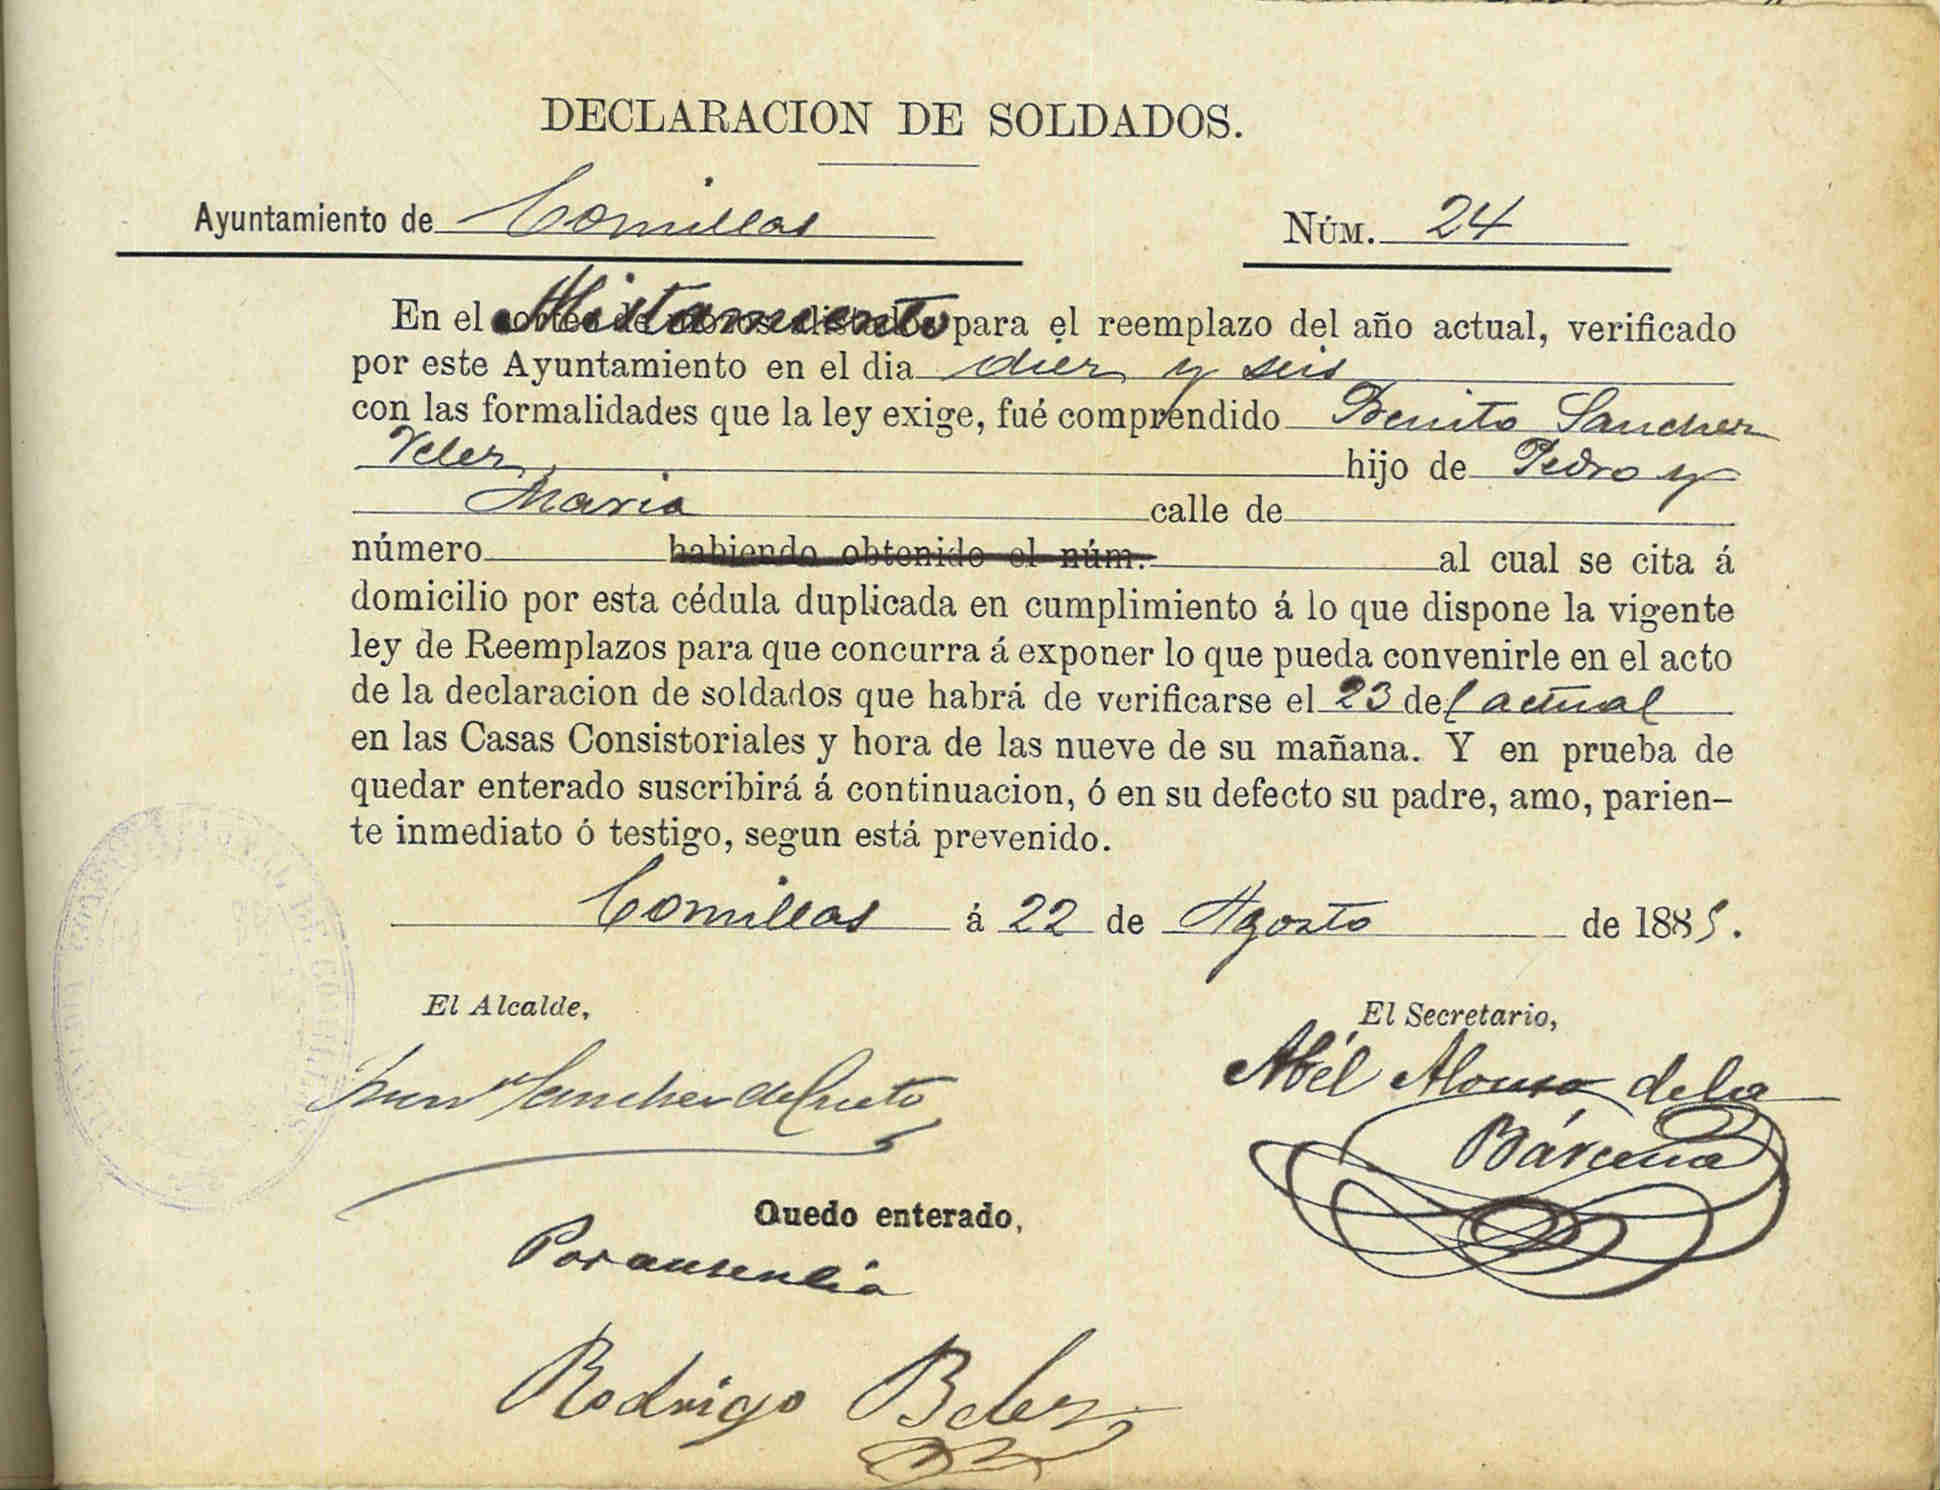 DECLARACION DE SOLDADOS.
Ayuntamiento de Comillas NÚM. 24
En el Alistamiento para el reemplazo del año actual, verificado
por este Ayuntamiento en el dia diez y seis
con las formalidades que la ley exige, fué comprendido Benito Sanchez
Velez, hijo de Pedro y
Maria calle de
número habiendo obtenido el núm. al cual se cita á
domicilio por esta cédula duplicada en cumplimiento á lo que dispone la vigente
ley de Reemplazos para que concurra á exponer lo que pueda convenirle en el acto
de la declaracion de soldados que habrá de verificarse el 23 del actual
en las Casas Consistoriales y hora de las nueve de su mañana. Y en prueba de
quedar enterado suscribirá á continuacion, ó en su defecto su padre, amo, parien-
te inmediato ó testigo, segun está prevenido.
Comillas á 22 de Agosto de 1885.
El Alcalde, El Secretario,
Sanchez de Cueto Abél Alonso de la
Bárcena
Quedo enterado,
Por ausencia
Rodrigo Belez